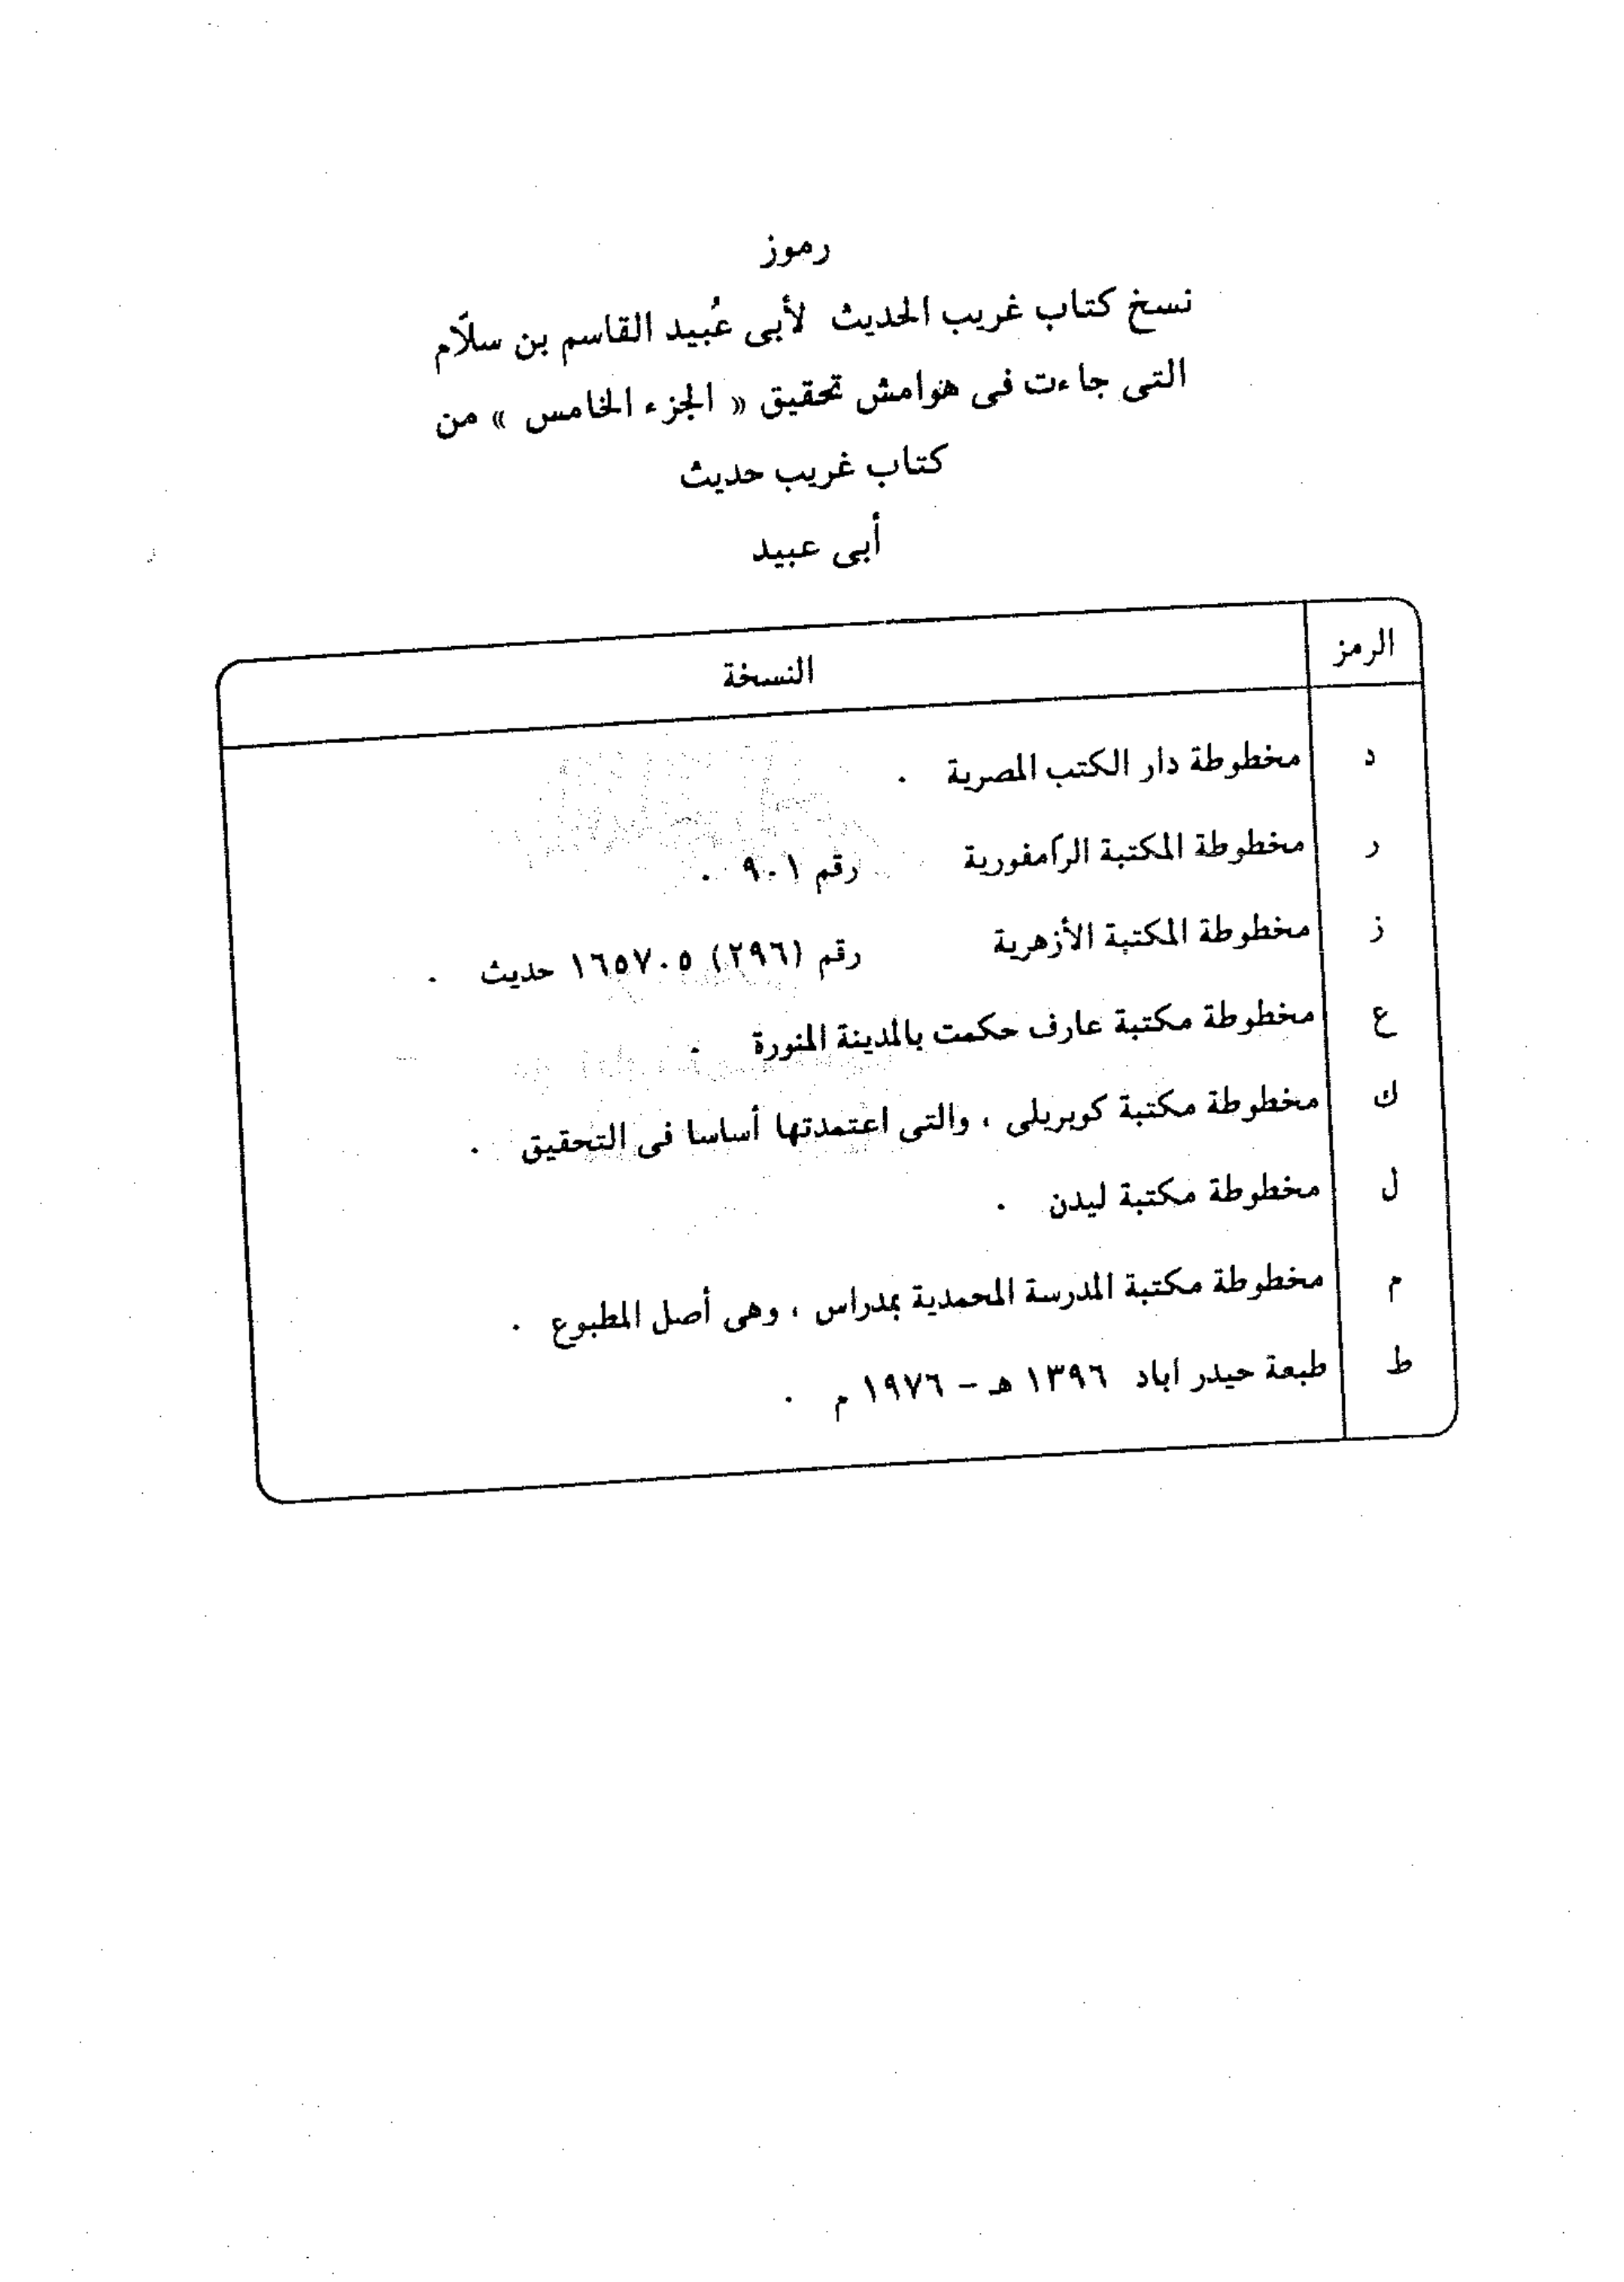 رموز
نسخ كتاب غريب الحديث لأبى عُبيد القاسم بن سلّام
التى جاءت فى هوامش تحقيق « الجزء الخامس » من
كتاب غريب حديث
أبى عبيد
الرمز النسخة
د مخطوطة دار الكتب المصرية .
ر مخطوطة المكتبة الرامفورية رقم ٩٠١ .
ز مخطوطة المكتبة الأزهرية رقم (٢٩٦) ١٦٥٧٠٥ حديث .
ع مخطوطة مكتبة عارف حكمت بالمدينة المنورة .
ك مخطوطة مكتبة كوبريلى ، والتى اعتمدتها أساسا فى التحقيق .
ل مخطوطة مكتبة ليدن .
م مخطوطة مكتبة المدرسة المحمدية بمدراس ، وهى أصل المطبوع .
ط طبعة حيدر اباد ١٣٩٦ هـ - ١٩٧٦ م .